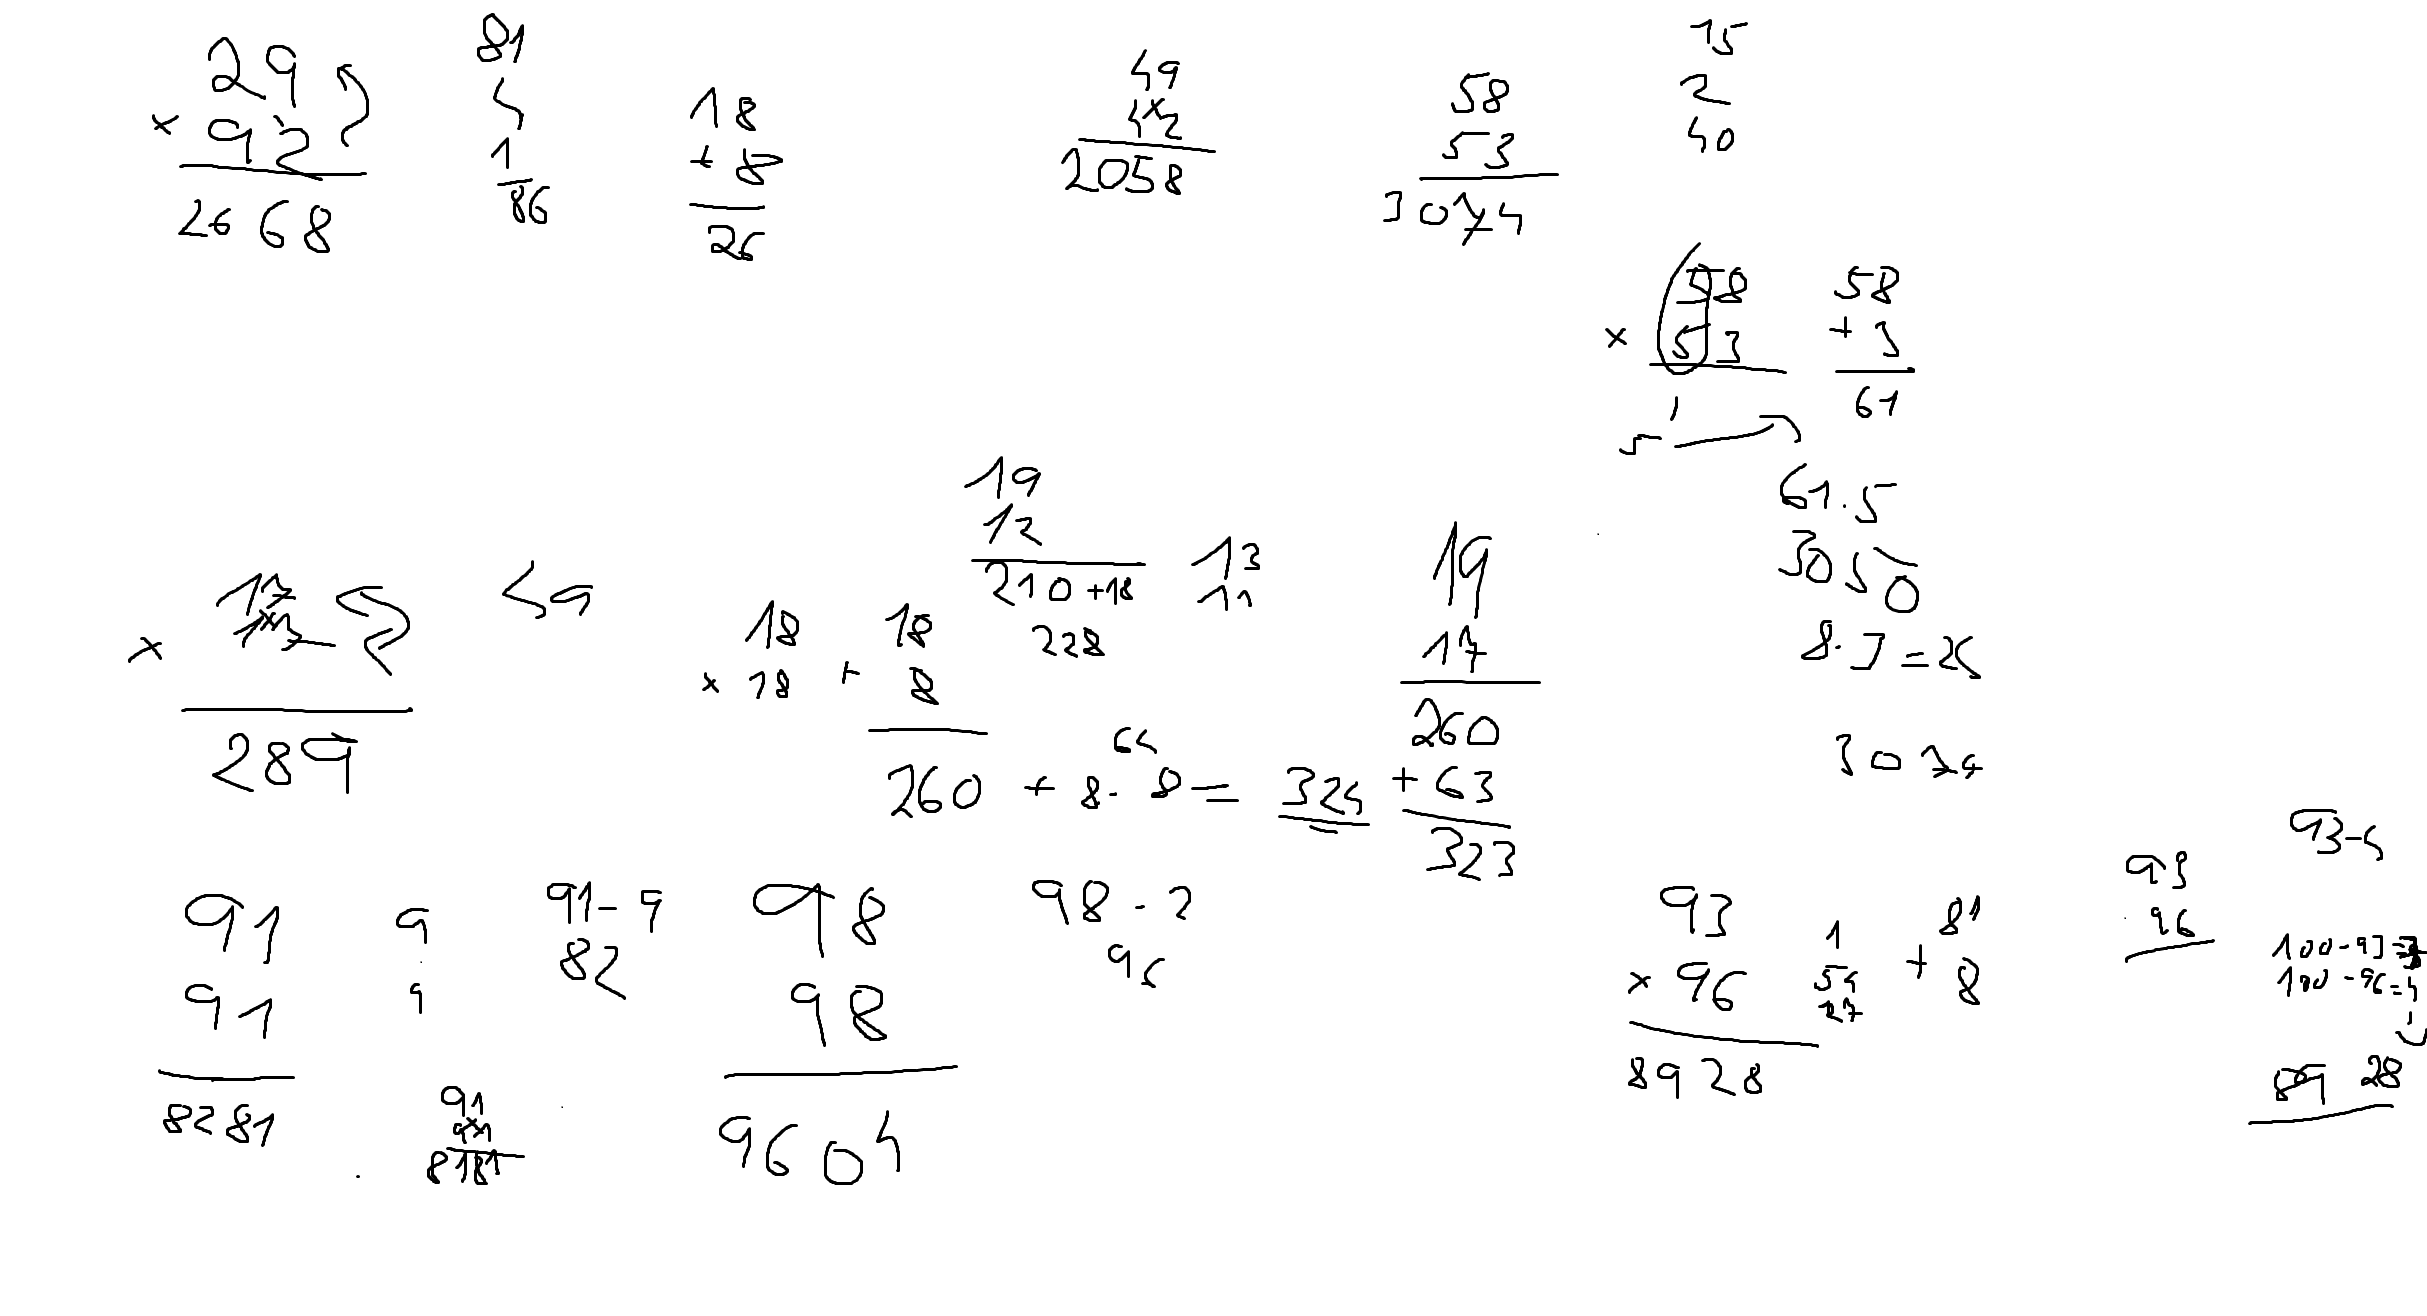 29
× 92
2668
81
4
1
86
18
+ 8
26
49
42
2058
58
53
3074
15
2
40
× 58
53
5
58
+ 3
61
61.5
3050
8.3=24
3074
× 17
17
289
49
19
12
210 +18
228
13
11
× 18
18
+ 18
8
64
260 + 8. 8 = 324
19
17
260
+ 63
323
91
91
8281
9
9
91-9
82
91
91
8181
98
98
9604
98 - 2
96
93
× 96
8928
1
54
27
81
+ 8
93
96
93-4
100-93=7
100-96=4
89 28